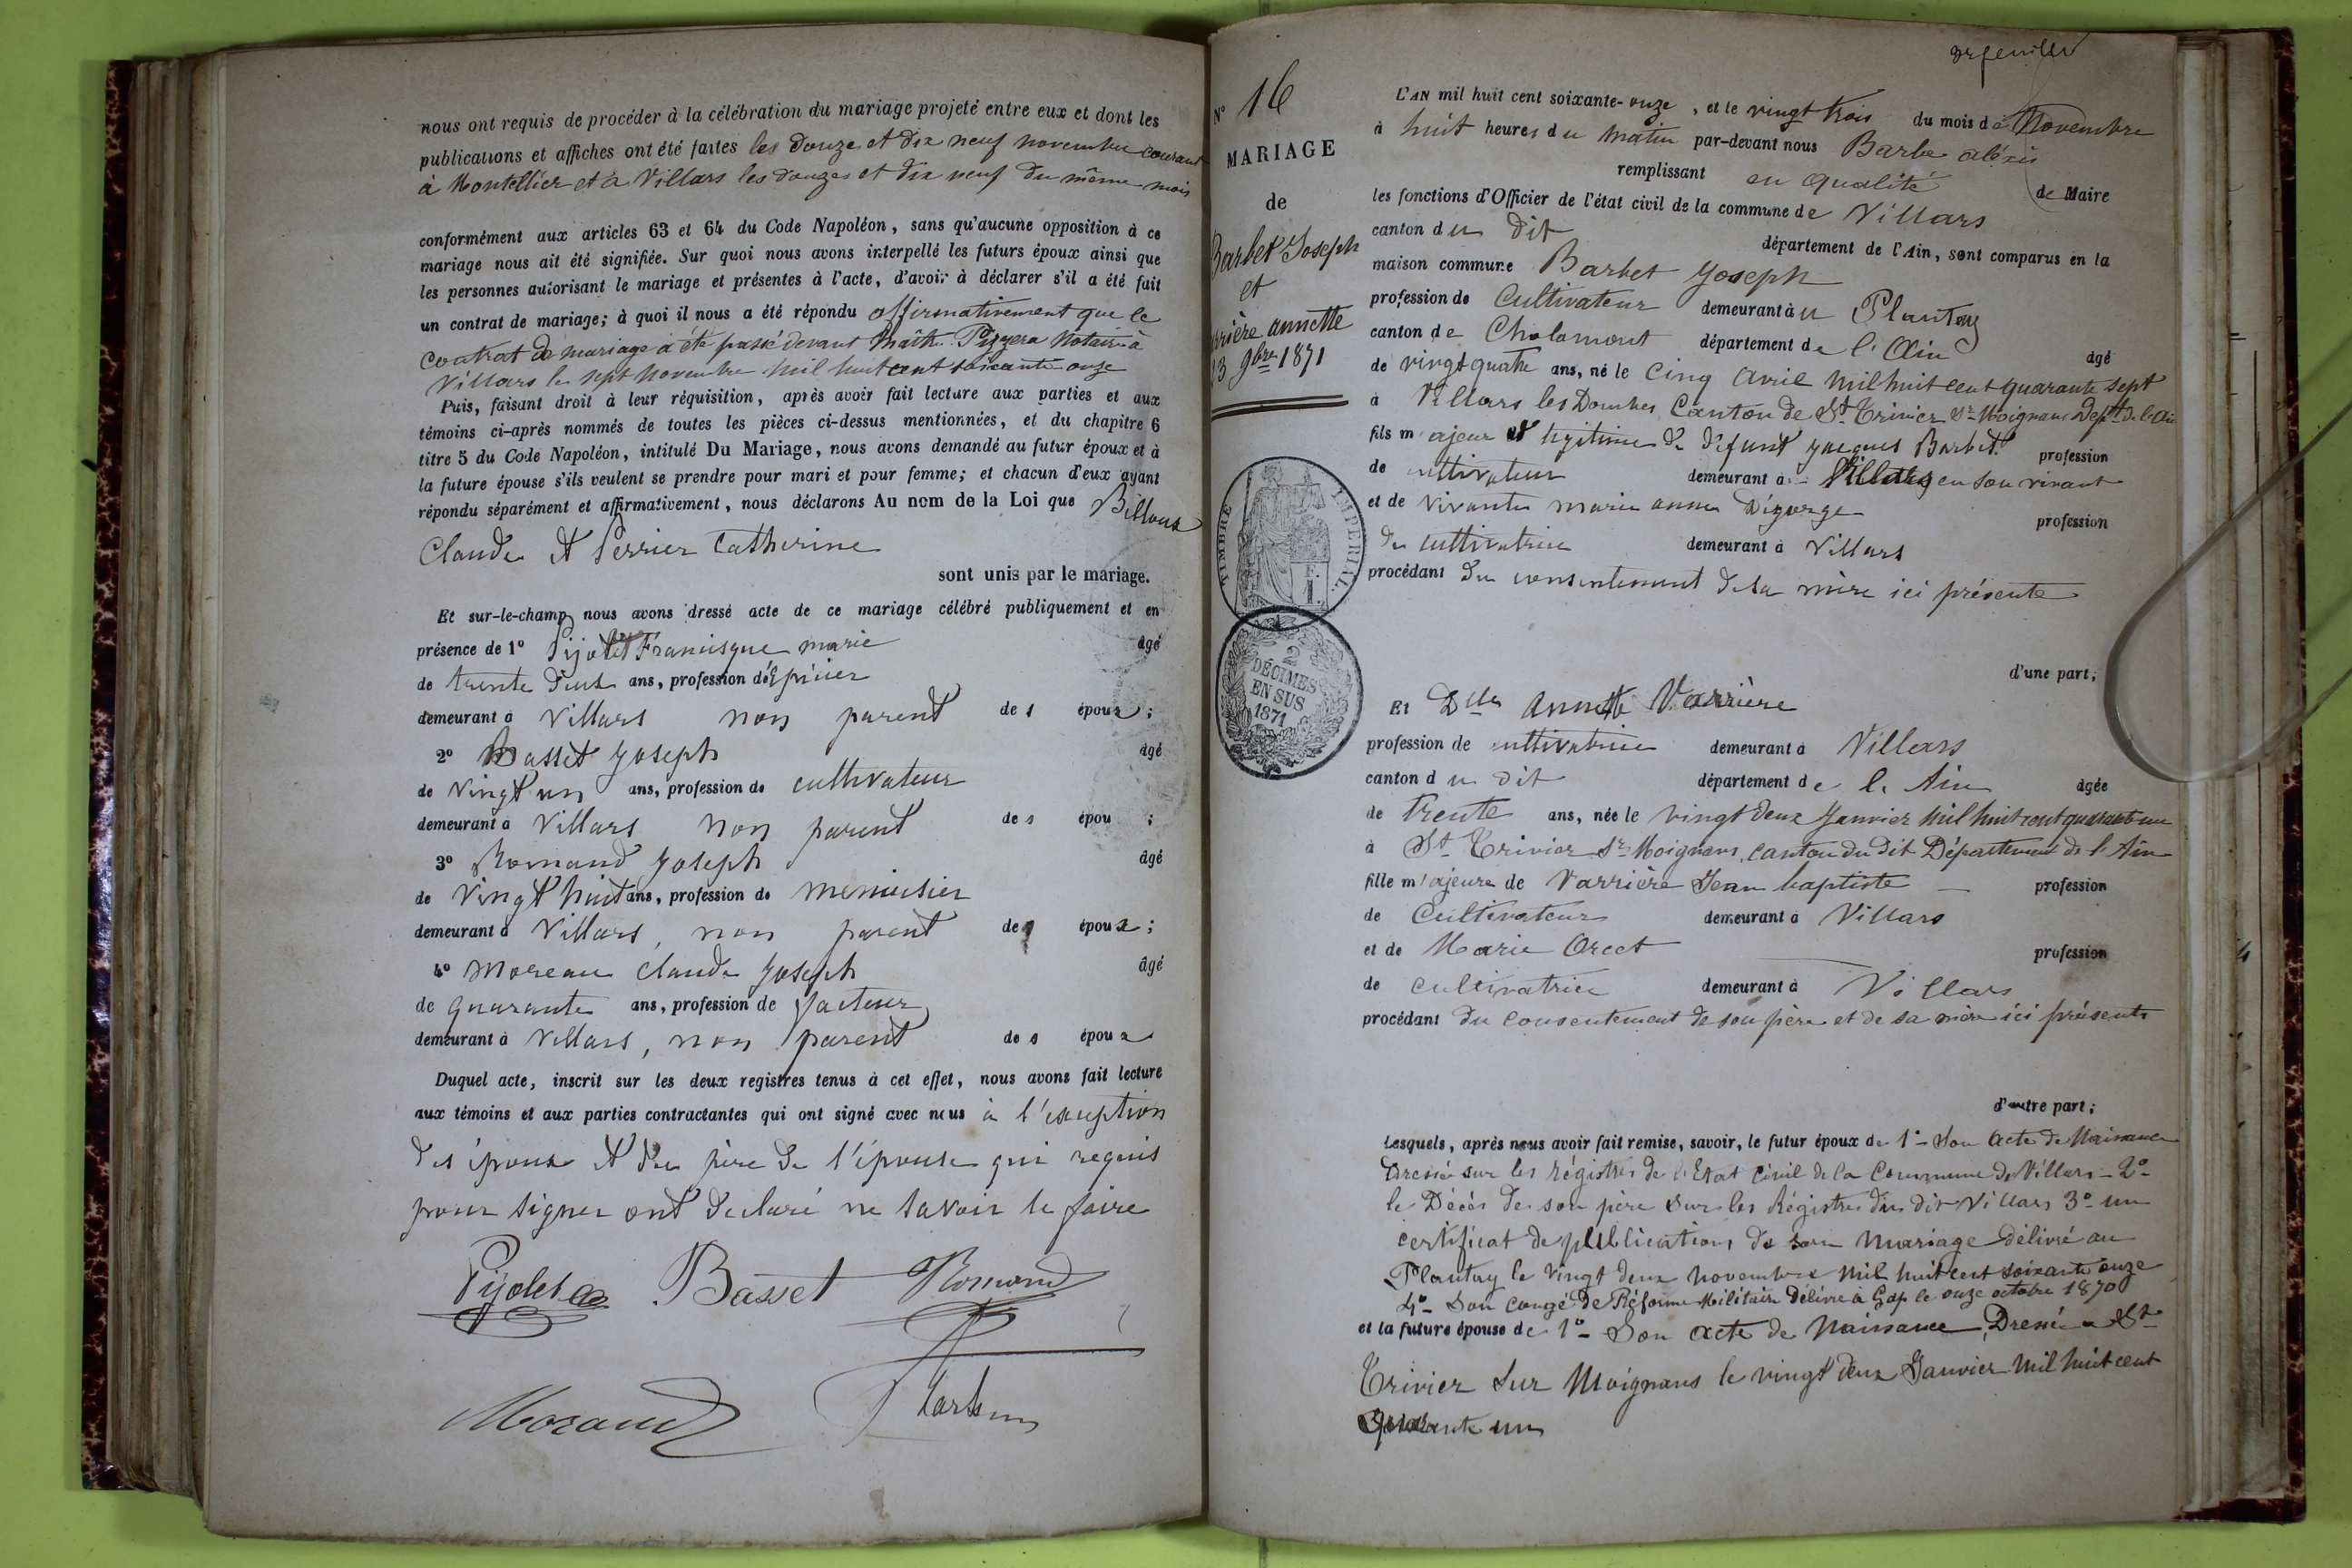 nous ont requis de procéder à la célébration du mariage projeté entre eux et dont les
publications et affiches ont été faites les douze et dix neuf novembre courant
à Montellier et à Villars les douze et dix neuf du même mois
conformément aux articles 63 et 64 du Code Napoléon, sans qu'aucune opposition à ce
mariage nous ait été signifiée. Sur quoi nous avons interpellé les futurs époux ainsi que
les personnes autorisant le mariage et présentes à l'acte, d'avoir à déclarer s'il a été fait
un contrat de mariage; à quoi il nous a été répondu affirmativement que le
contrat de mariage a été passé devant Maître Notaire à
Villars le sept novembre mil huit cent soixante onze
Puis, faisant droit à leur réquisition, après avoir fait lecture aux parties et aux
témoins ci-après nommés de toutes les pièces ci-dessus mentionnées, et du chapitre 6
titre 5 du Code Napoléon, intitulé Du Mariage, nous avons demandé au futur époux et à
la future épouse s'ils veulent se prendre pour mari et pour femme; et chacun d'eux ayant
répondu séparément et affirmativement, nous déclarons Au nom de la Loi que Billoux
Claude et Perrier Catherine
sont unis par le mariage.
Et sur-le-champ nous avons dressé acte de ce mariage célébré publiquement et en
présence de 1° Pijolet Francisque marie âgé
de trente deux ans, profession d'Epicier
demeurant à Villars non parent des époux;
2° Basset Joseph âgé
de Vingt un ans, profession de cultivateur
demeurant à Villars non parent des épou ;
3° Romand Joseph âgé
de Vingt huit ans, profession de menuisier
demeurant à Villars, non parent des époux;
4° Moreau Claude Joseph âgé
de quarante ans, profession de facteur
demeurant à Villars, non parent des époux
Duquel acte, inscrit sur les deux registres tenus à cet effet, nous avons fait lecture
aux témoins et aux parties contractantes qui ont signé avec nous à l'exception
des époux et du père de l'épouse qui requis
pour signer ont déclaré ne savoir le faire
Pijolet Basset Romand
N° 16
MARIAGE
de
Barbet Joseph
et
rrière annette
23 9bre 1871
TIMBRE IMPERIAL
1 F.
2
DÉCIMES
EN SUS
1871
L'AN mil huit cent soixante-onze, et le vingt trois du mois de Novembre
à huit heures du matin par-devant nous Barbe aléxis
remplissant en qualité de Maire
les fonctions d'Officier de l'état civil de la commune de Villars
canton du dit département de l'Ain, sont comparus en la
maison commune Barbet Joseph
profession de Cultivateur demeurant au Plantay
canton de Chalamont département de l'Ain âgé
de vingt quatre ans, né le cinq Avril mil huit cent quarante sept
à Villars les Dombes, Canton de St Trivier Sr Moignans Dept de l'Ain
fils majeur et légitime de défunt Jacques Barbet profession
de cultivateur demeurant à Villars en son vivant
et de vivante marie anne Digorge profession
de cultivatrice demeurant à Villars
procédant du consentement de sa mère ici présente
d'une part;
Et Dlle Annette Varrière
profession de cultivatrice demeurant à Villars
canton du dit département de l'Ain âgée
de trente ans, née le vingt deux Janvier mil huit cent quarante un
à St Trivier Sr Moignans, canton du dit Département de l'Ain
fille majeure de Varrière Jean baptiste profession
de Cultivateur demeurant à Villars
et de Marie Orcet profession
de cultivatrice demeurant à Villars
procédant du consentement de son père et de sa mère ici présents
d'autre part;
Lesquels, après nous avoir fait remise, savoir, le futur époux de 1°- Son Acte de Naissance
Dressé sur les régistres de l'Etat Civil de la Commune de Villars - 2°-
le Décés de son père sur les Régistres du dit Villars 3°- un
certificat de publications de son mariage délivré au
Plantay le Vingt deux novembre mil huit cent soixante onze
4°- Son congé de Réforme Militaire Délivré à Gap le onze octobre 1870
et la future épouse de 1°- Son acte de Naissance, Dressé à St
Trivier Sur Moignans le vingt deux Janvier mil huit cent
Quarante un